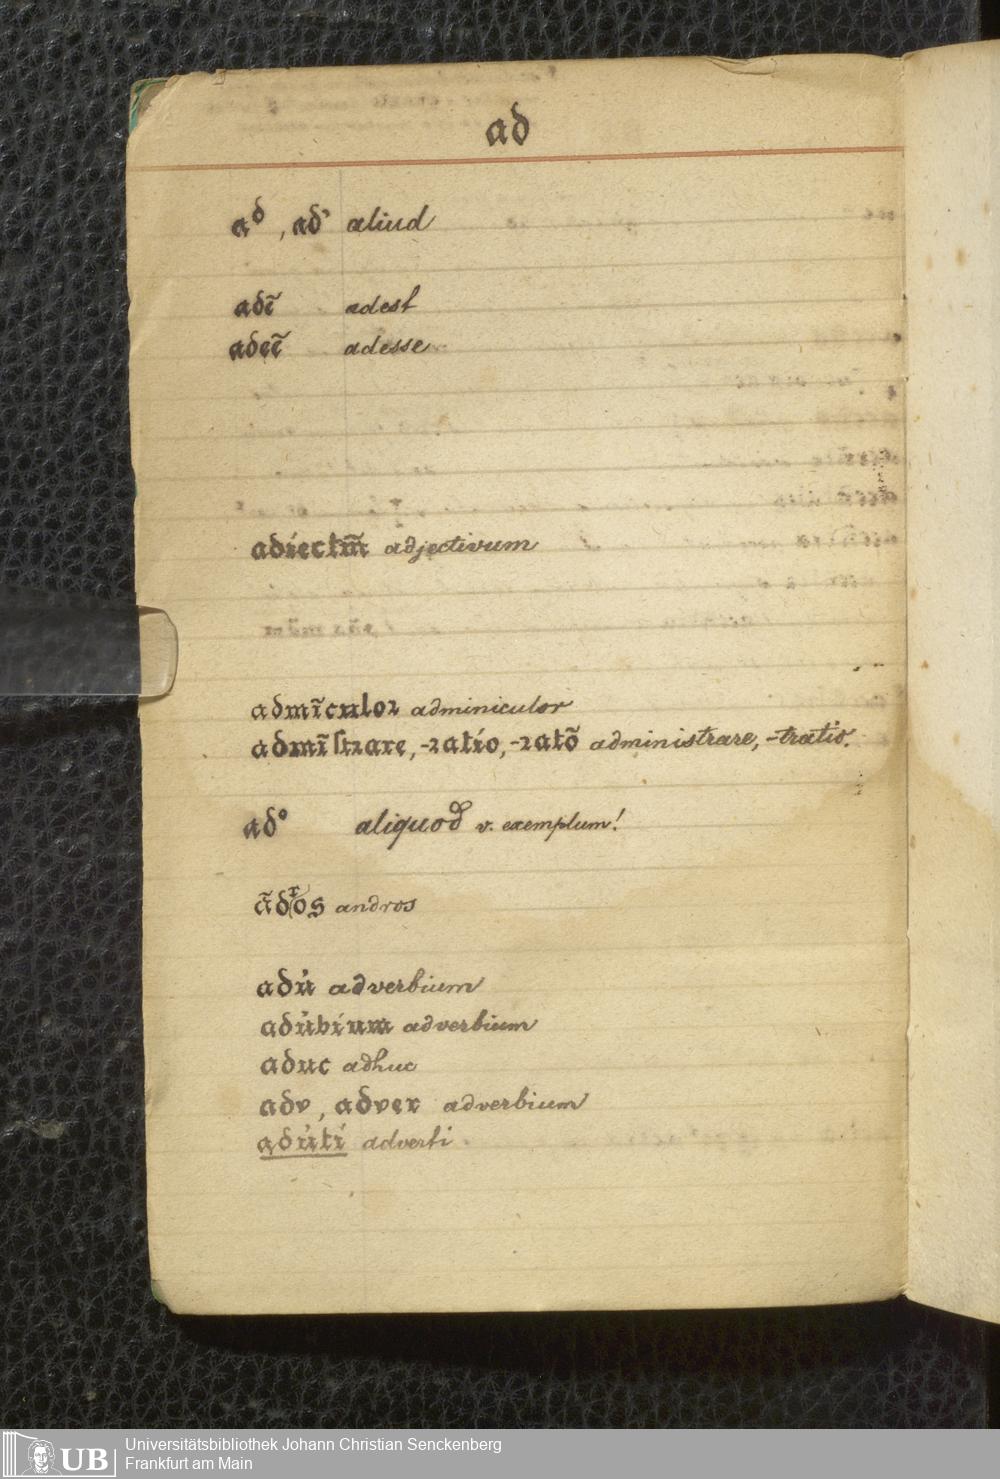 ad
aᵈ, ad’ aliud
adē̄ adest
adeē̄ adesse
adiectm̄ adjectivum
admīculoꝛ adminiculor
admīſtrare, -ꝛatio, -ꝛatō administrare, -tratio.
ad° aliquod v. exemplum!
ādʳos andros
adu̓ adverbium
adu̓bium adverbium
aduc adhuc
adv, adver adverbium
adu̓ti adverti
Universitätsbibliothek Johann Christian Senckenberg
UB Frankfurt am Main